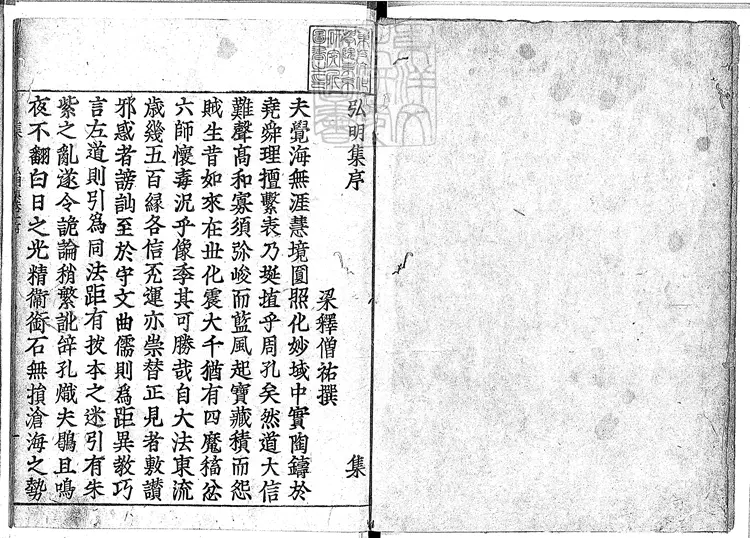 弘明集序
梁釋僧祐撰 集
夫覺海無涯慧境圓照化妙域中實陶鑄於
堯舜理擅繫表乃埏埴乎周孔矣然道大信
難聲高和寡須弥峻而藍風起寶藏積而怨
賊生昔如來在世化震大千猶有四魔稿忿
六師懷毒況乎像季其可勝哉自大法東流
歲幾五百緣各信否運亦崇替正見者敷讚
邪惑者謗訕至於守文曲儒則為距異教巧
言左道則引為同法距有拔本之迷引有朱
紫之亂遂令詭論稍繁訛辭孔熾夫鶡且鳴
夜不翻白日之光精衛銜石無損滄海之勢